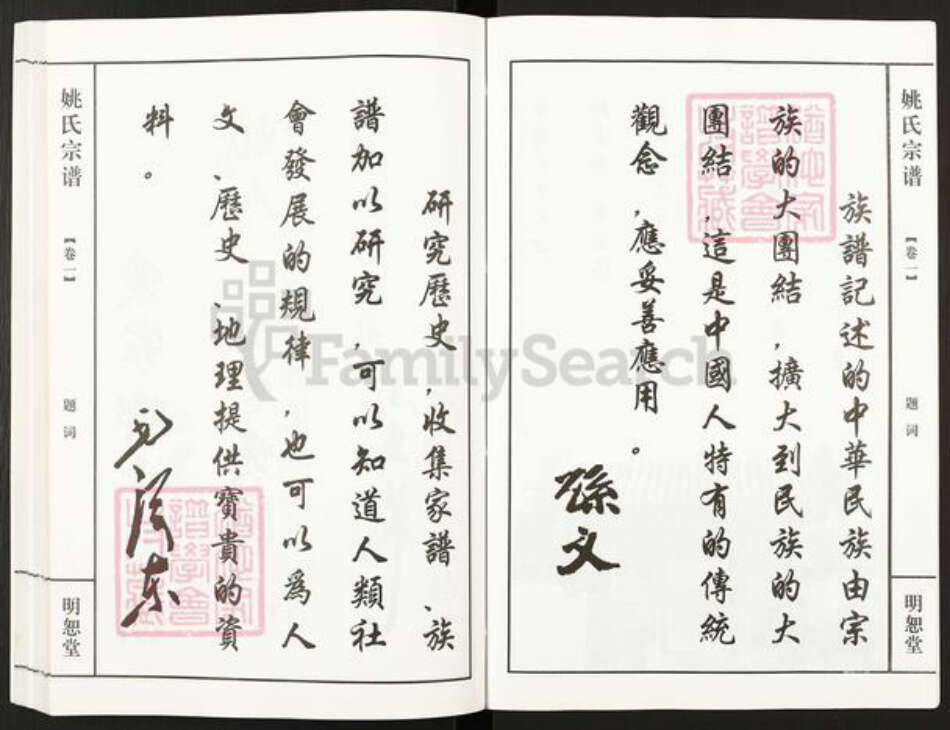 姚氏宗谱
【卷一】
题词
明恕堂
族譜記述的中華民族由宗
族的大團結，擴大到民族的大
團結，這是中國人特有的傳統
觀念，應妥善應用。
孫文
研究歷史，收集家譜、族
譜加以研究，可以知道人類社
會發展的規律，也可以為人
文、歷史、地理提供寶貴的資
料。
毛泽东
姚氏宗谱
【卷一】
题词
明恕堂
FamilySearch